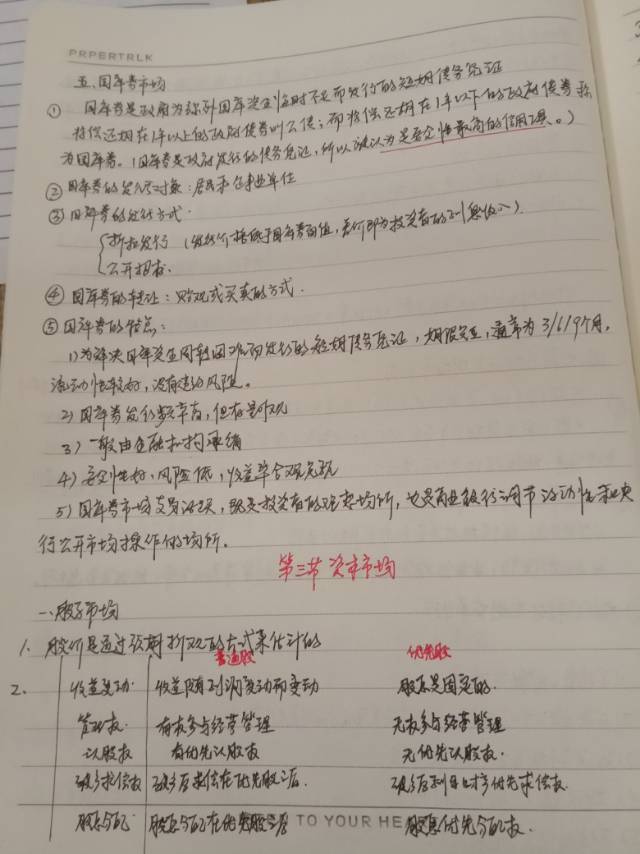 PRPERTRLK
五、国库券市场
① 国库券是政府为弥补国库资金临时不足而发行的短期债务凭证
将偿还期在1年以上的政府债券叫公债；而将偿还期在1年以下的政府债券称
为国库券。(国库券是政府发行的债务凭证，所以被认为是安全性最高的信用工具。)
②国库券的发行对象：居民和企事业单位
③国库券的发行方式.
折扣发行 (发行价格低于国库券面值，差价即为投资者的利息收入)
公开招标.
④ 国库券的转让：贴现或买卖的方式.
⑤国库券的特点：
1)为解决国库资金周转困难而发行的短期债务凭证，期限短，通常为3/6/9个月，
流动性较好，没有违约风险。
2) 国库券发行频率高，但存贴现
3) 一般由金融机构承销
4) 安全性好、风险低，收益率合观
5) 国库券市场交易活跃，既是投资者的理想场所，也是商业银行调节流动性和央
行公开市场操作的场所。
第三节 资本市场
一.股票市场
1. 股价是通过预期折现的方式来估计的
普通股 优先股
2. 收益变动 收益随利润变动而变动 股息是固定的.
管理权. 有权参与经营管理 无权参与经营管理
认股权 有优先认股权 无优先认股权.
破产求偿权 破产后求偿在优先股之后. 破产后剩余财产优先求偿权.
股息分配 股息分配在优先股之后 股息优先分配权.
TO YOUR HEA